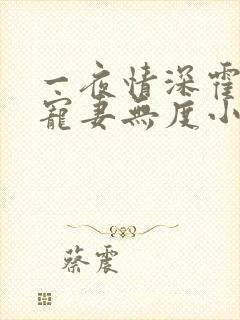 一夜情深霍
宠妻无度小
蔡震